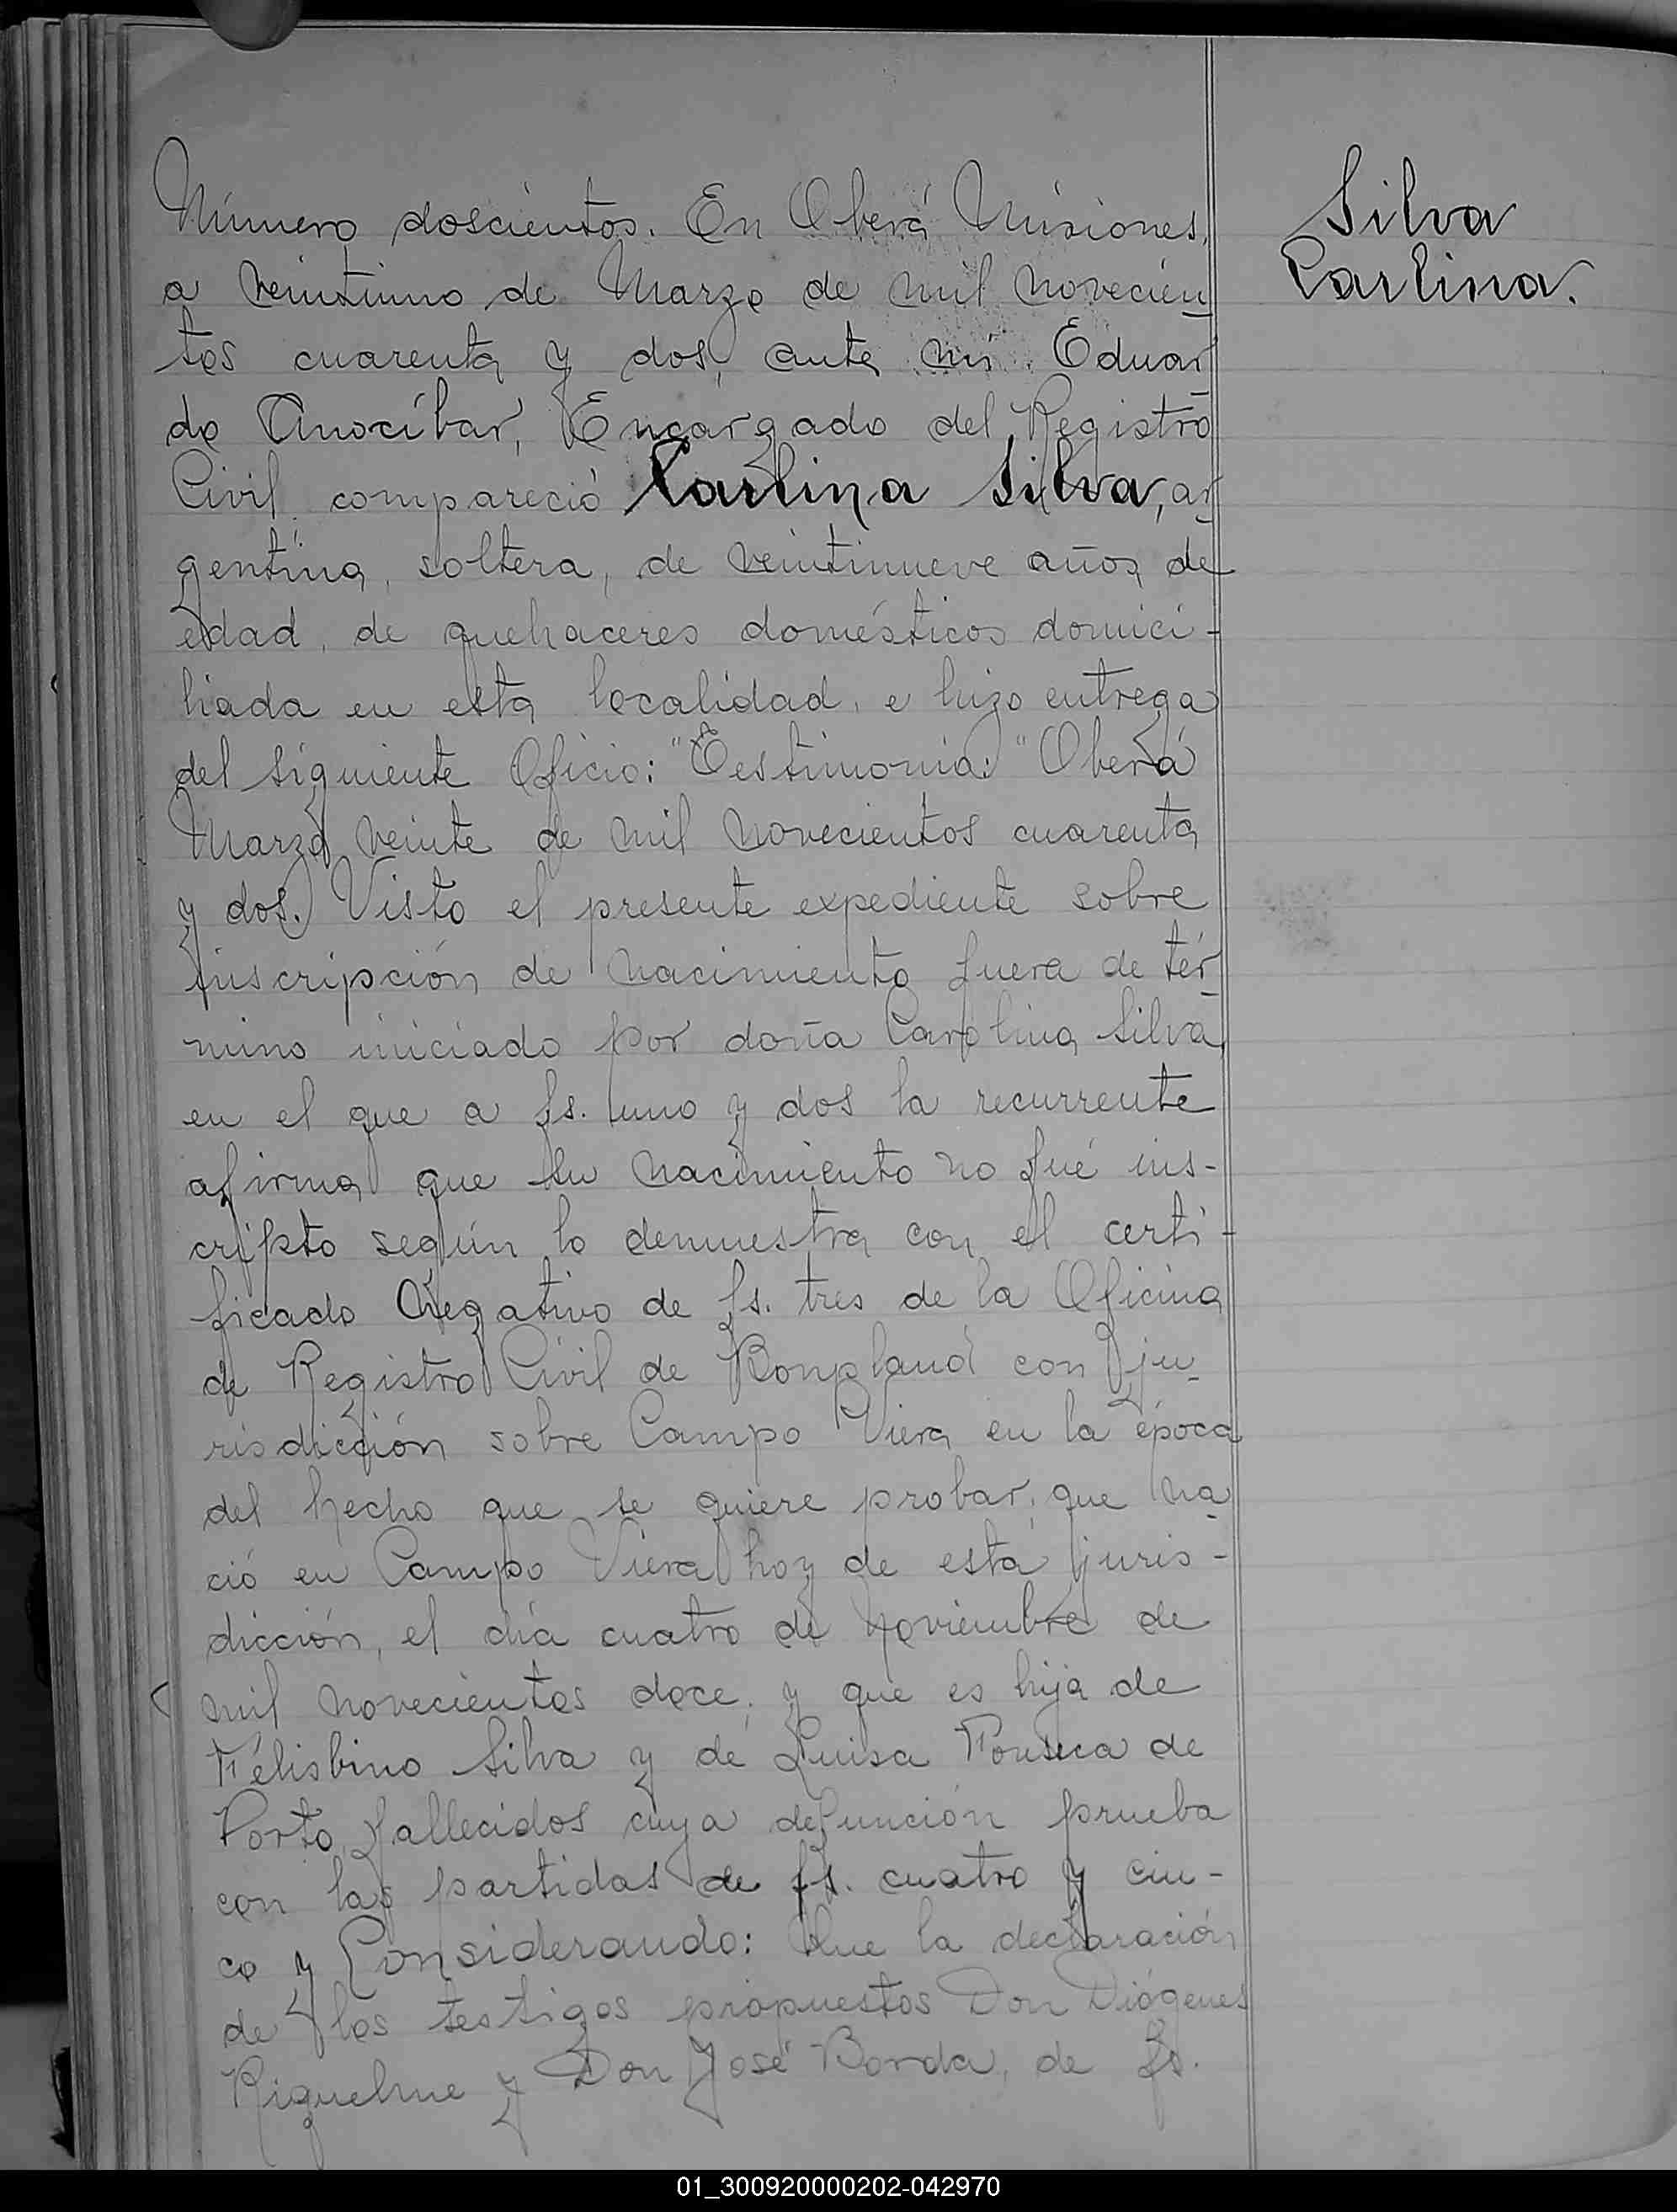 Número doscientos. En Oberá Misiones,
a veintiuno de Marzo de mil novecien
tos cuarenta y dos, ante mí Eduar
do Anocíbar, Encargado del Registro
Civil compareció Carlina Silva, ar
gentina, soltera, de veintinueve años de
edad, de quehaceres domésticos domici-
liada en esta localidad, e hizo entrega
del siguiente Oficio: "Testimonio:" Oberá
Marzo veinte de mil novecientos cuarenta
y dos. Visto el presente expediente sobre
inscripción de nacimiento fuera de tér
mino iniciado por doña Carolina Silva,
en el que a fs. uno y dos la recurrente
afirma que su nacimiento no fué ins-
cripto según lo demuestra con el certi-
ficado Negativo de fs. tres de la Oficina
de Registro Civil de Bonpland con ju-
risdicción sobre Campo Viera en la época
del hecho que se quiere probar, que na
ció en Campo Viera hoy de esta juris-
dicción, el día cuatro de noviembre de
mil novecientos doce, y que es hija de
Felisbino Silva y de Luisa Fonseca de
Porto, fallecidos cuya defunción prueba
con las partidas de fs. cuatro y cin-
co y Considerando: Que la declaración
de los testigos propuestos Don Diógenes
Riquelme y Don José Borda, de fs.
Silva
Carlina.
01_300920000202-042970